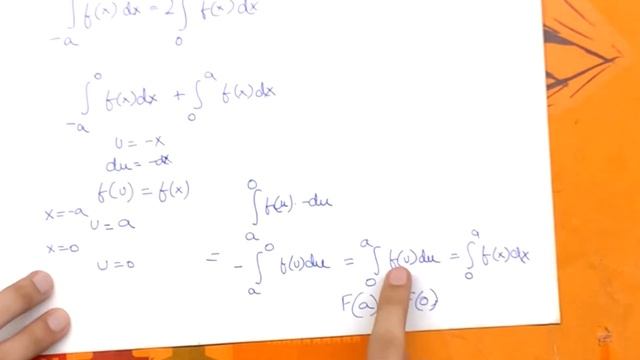 ∫_{-a} f(x) dx = 2∫_0 f(x) dx
∫_{-a}^0 f(x)dx + ∫_0^a f(x)dx
u = -x
du = -dx
f(u) = f(x)
x=-a
u=a
x=0
u=0
∫_a^0 f(u)·-du
= -∫_a^0 f(u)du = ∫_0^a f(u)du = ∫_0^a f(x)dx
F(a) F(0)